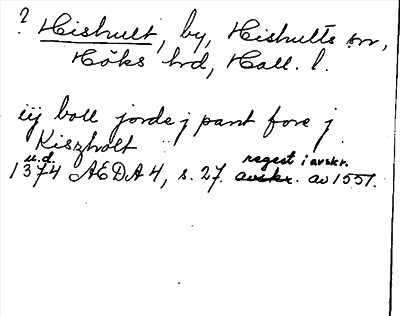 ? Hishult, by, Hishults sn,
Höks hrd, Hall. l.
iij boll jorde j pant fore j
Kiszholt
u.d. regest i avskr.
1374 AEDA 4, s. 27. avskr. av 1551.